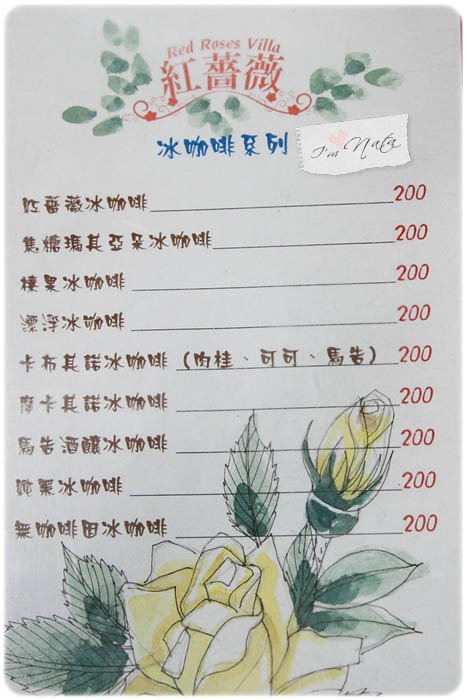 Red Roses Villa
紅薔薇
冰咖啡系列
I'm Nata
紅薔薇冰咖啡 200
焦糖瑪其亞朵冰咖啡 200
榛果冰咖啡 200
漂浮冰咖啡 200
卡布其諾冰咖啡(肉桂、可可、馬告) 200
摩卡其諾冰咖啡 200
馬告酒釀冰咖啡 200
純黑冰咖啡 200
無咖啡因冰咖啡 200